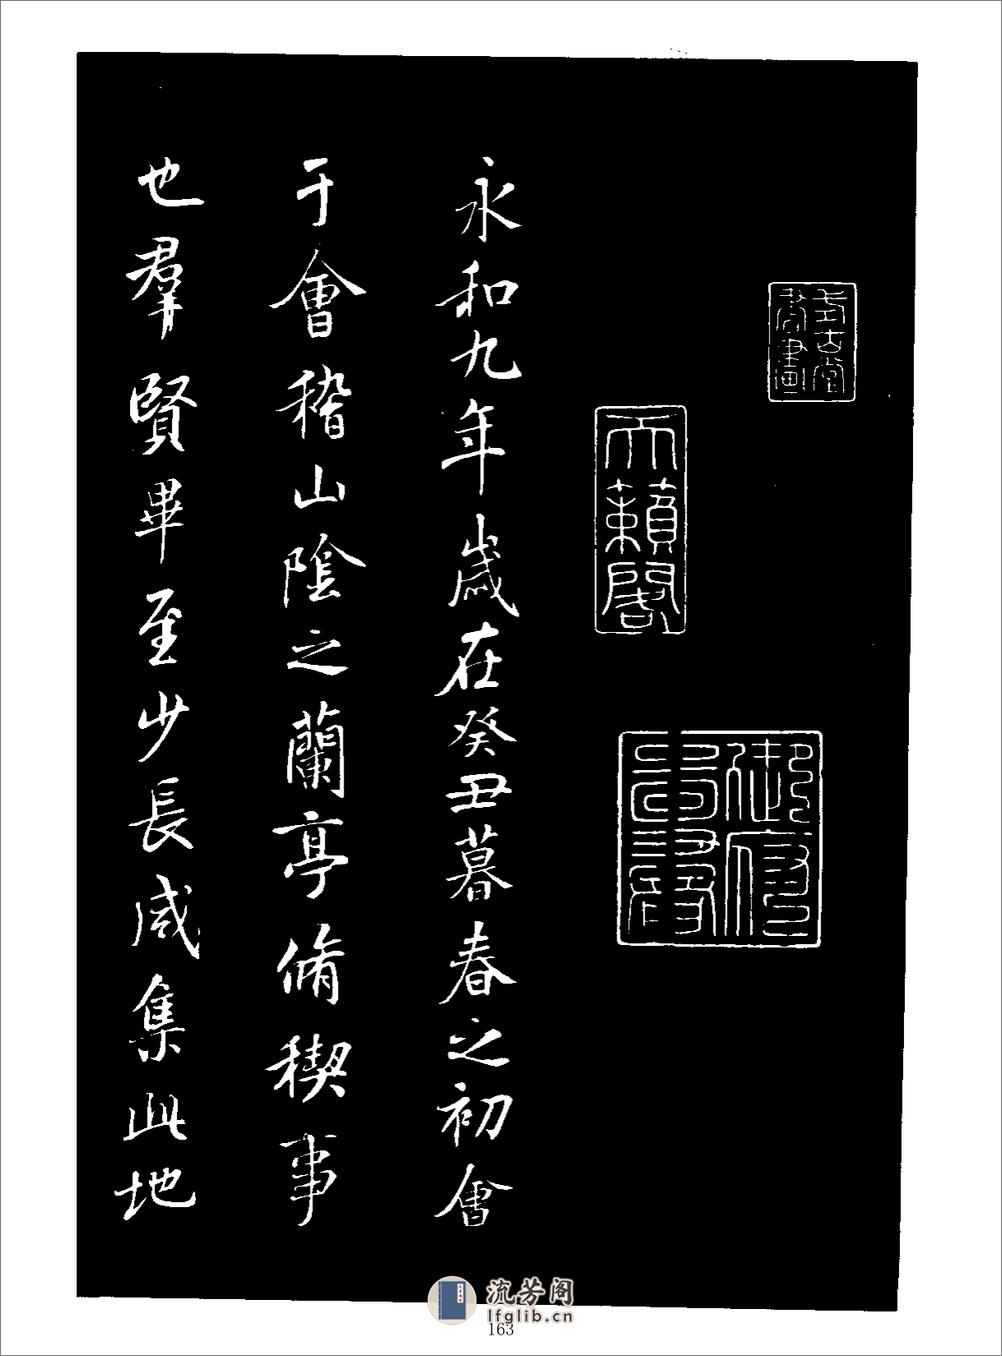 式古堂
書畫
天籟閣
御府
永和九年歲在癸丑暮春之初會
于會稽山陰之蘭亭脩稧事
也羣賢畢至少長咸集此地
流芳阁
lfglib.cn
163